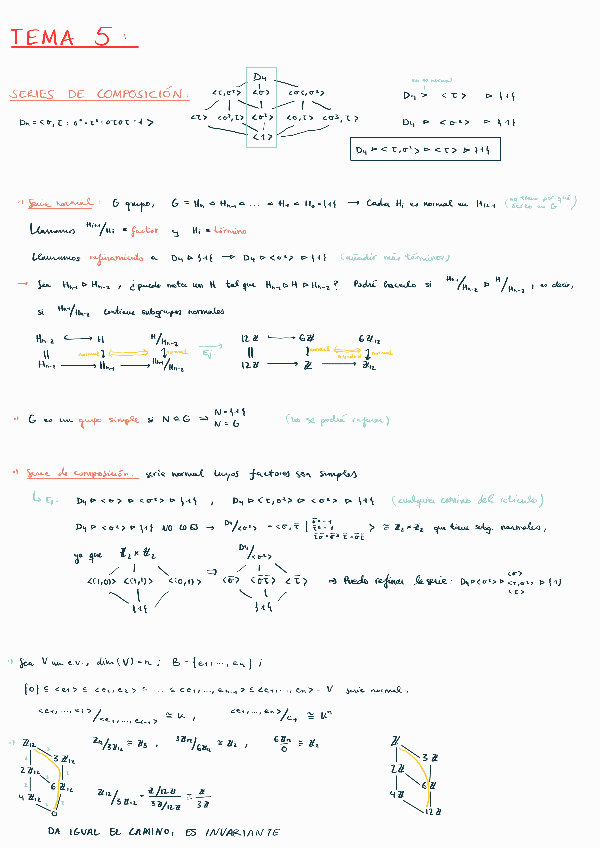 TEMA 5:
SERIES DE COMPOSICIÓN:
D₄
<τ,σ²> <σ> <στ,σ²>
<τ> <σ²,τ> <σ²> <σ,τ> <σ³,τ>
<1>
D₄ = <σ,τ : σ⁴=τ²=στστ=1>
no es normal
D₄ ▷ <τ> ▷ {1}
D₄ ▷ <σ²> ▷ {1}
D₄ ▷ <τ,σ²> ▷ <τ> ▷ {1}
Serie normal: G grupo, G = Hn ▷ Hn-1 ▷ ... ▷ H1 ▷ H0 = {1} → Cada Hi es normal en Hi+1 (no tiene por qué serlo en G)
Llamamos Hi+1/Hi = factor y Hi = término
Llamamos refinamiento a D₄ ▷ {1} → D₄ ▷ <σ²> ▷ {1} (añadir más términos)
→ Sea Hn-1 ▷ Hn-2, ¿puedo meter un H tal que Hn-1 ▷ H ▷ Hn-2? Podré hacerlo si Hn-1/Hn-2 ▷ H/Hn-2, es decir,
si Hn-1/Hn-2 contiene subgrupos normales
Hn-2 → H H/Hn-2
normal normal
Hn-2 → Hn-1 → Hn-1/Hn-2
Ej
12ℤ → 6ℤ 6ℤ₁₂
normal normal
12ℤ → ℤ → ℤ₁₂
G es un grupo simple si N ⊲ G ⇒ N={1} N=G (no se podrá refinar)
Serie de composición: serie normal cuyos factores son simples
↳ Ej. D₄ ▷ <σ> ▷ <σ²> ▷ {1}, D₄ ▷ <τ,σ²> ▷ <σ²> ▷ {1} (cualquier camino del retículo)
D₄ ▷ <σ²> ▷ {1} NO LO ES → D₄/<σ²> = <σ,τ | > ≅ ℤ₂×ℤ₂ que tiene subg. normales,
ya que ℤ₂×ℤ₂ D₄/<σ²>
<(1,0)> <(1,1)> <(0,1)> ⇒ <σ̄> <σ̄τ̄> <τ̄> → Puedo refinar la serie: D₄ ▷ <σ²> ▷ {1}
{1} {1}
Sea V un e.v., dim(V)=n; B={e1,...,en};
{0} ≤ <e1> ≤ <e1,e2> ≤ ... ≤ <e1,...,en-1> ≤ <e1,...,en> = V serie normal.
<e1,...,ei>/<e1,...,ei-1> ≅ K,
ℤ₁₂/3ℤ₁₂ ≅ ℤ₃, 3ℤ₁₂/6ℤ₁₂ ≅ ℤ₂, 6ℤ₁₂/0 ≅ ℤ₂
ℤ₁₂ 3ℤ₁₂
2ℤ₁₂ 6ℤ₁₂
4ℤ₁₂ 0
ℤ₁₂/3ℤ₁₂ = ℤ/12ℤ / 3ℤ/12ℤ = ℤ/3ℤ
ℤ 3ℤ
2ℤ 6ℤ
4ℤ 12ℤ
DA IGUAL EL CAMINO, ES INVARIANTE